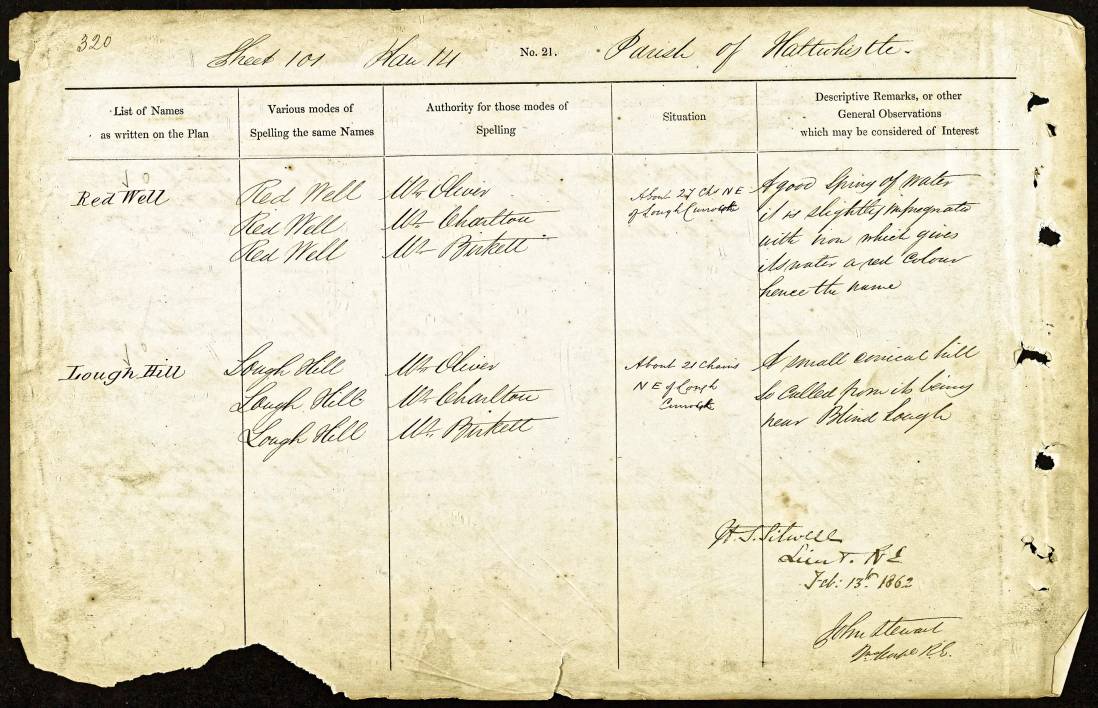 320
Sheet 101 Plan 14 No. 21. Parish of Haltwhistle.
List of Names
as written on the Plan
Various modes of
Spelling the same Names
Authority for those modes of
Spelling
Situation
Descriptive Remarks, or other
General Observations
which may be considered of Interest
Red Well
Red Well
Red Well
Red Well
Mr. Oliver
Mr. Charlton
Mr. Birkett
About 27 Chs NE
of Lough
A good Spring of Water
it is slightly impregnated
with iron which gives
its water a red Colour
hence the name
Lough Hill
Lough Hill
Lough Hill
Lough Hill
Mr. Oliver
Mr. Charlton
Mr. Birkett
About 21 Chains
NE of Lough
A small conical hill
So called from its being
near Blind Lough
H. S. Sitwell
Lieut. RE
Feb: 13th 1862
John Stewart
R.E.